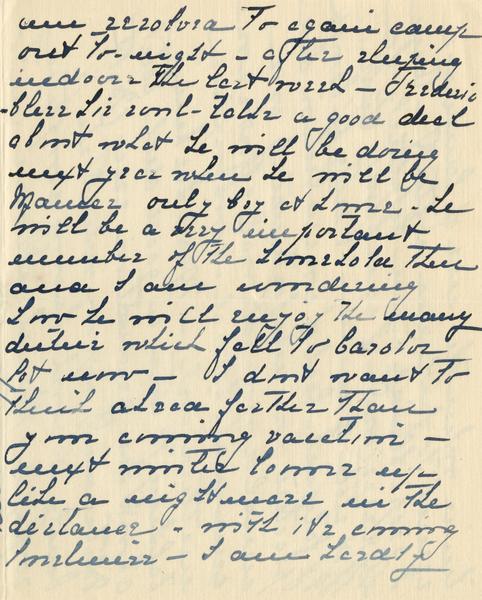 am resolved to again camp
out to-night - after sleeping
indoors the last week - Frederic
- bless his soul - talks a good deal
about what he will be doing
next year when he will be
Mama's only boy at home - he
will be a very important
member of the household then
and I am wondering
how he will enjoy the many
duties which fall to
now - I don't want to
think ahead farther than
your coming vacation -
next winter looms up
like a nightmare in the
distance - with its coming
loneliness - I am hardly